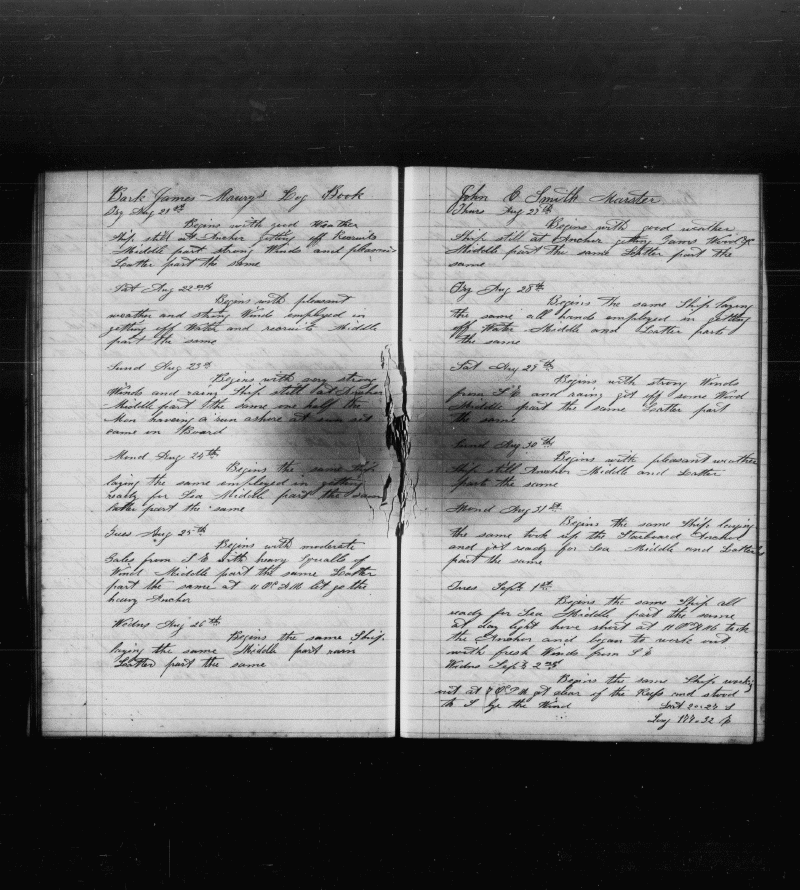 Bark James Maurys Log Book
Fry Aug 21st
Begins with good Weather
Ship still at Ancher getting off Recruits
Middle part strong Winds and pleasant
Latter part the same
Sat Aug 22nd
Begins with pleasant
weather and strong Winds employed in
getting off Water and recruits Middle
part the same
Sund Aug 23rd
Begins with strong
Winds and rainy Ship still at Ancher
Middle part the same one half the
Men having a run ashore at sun set
came on Board
Mond Aug 24th
Begins the same Ship
laying the same employed in getting
ready for Sea Middle part the same
latter part the same
Tues Aug 25th
Begins with moderate
Gales from S E with heavy Squalls of
Wind Middle part the same Latter
part the same at 11 let go the
heavy Anchor
Wedns Aug 26th
Begins the same Ship
laying the same Middle part rain
Latter part the same
John C Smith Marster
Thurs Aug 27th
Begins with good weather
Ship still at Ancher getting Yams Wood &c
Middle part the same Latter part the
same
Fry Aug 28th
Begins the same Ship laying
the same all hands employed in getting
off Water Middle and Latter parts
the same
Sat Aug 28th
Begins with strong Winds
from S E and rainy got off some Wood
Middle part the same Latter part
the same
Sund Aug 30th
Begins with pleasant weather
Ship still Ancher Middle and Latter
parts the same
Mond Aug 31st
Begins the same Ship laying
the same took up the Starboard Ancher
and got ready for Sea Middle and Latter
part the same
Tues Sept 1st
Begins the same Ship all
ready for Sea Middle part the same
at day light hove short at took
the Anchor and began to work out
with fresh Winds from S E
Wedns Sept 2nd
Begins the same Ship working
out at 7 P M got clear of the Reefs and stood
to S by the Wind
Lat 20.23 S
Long